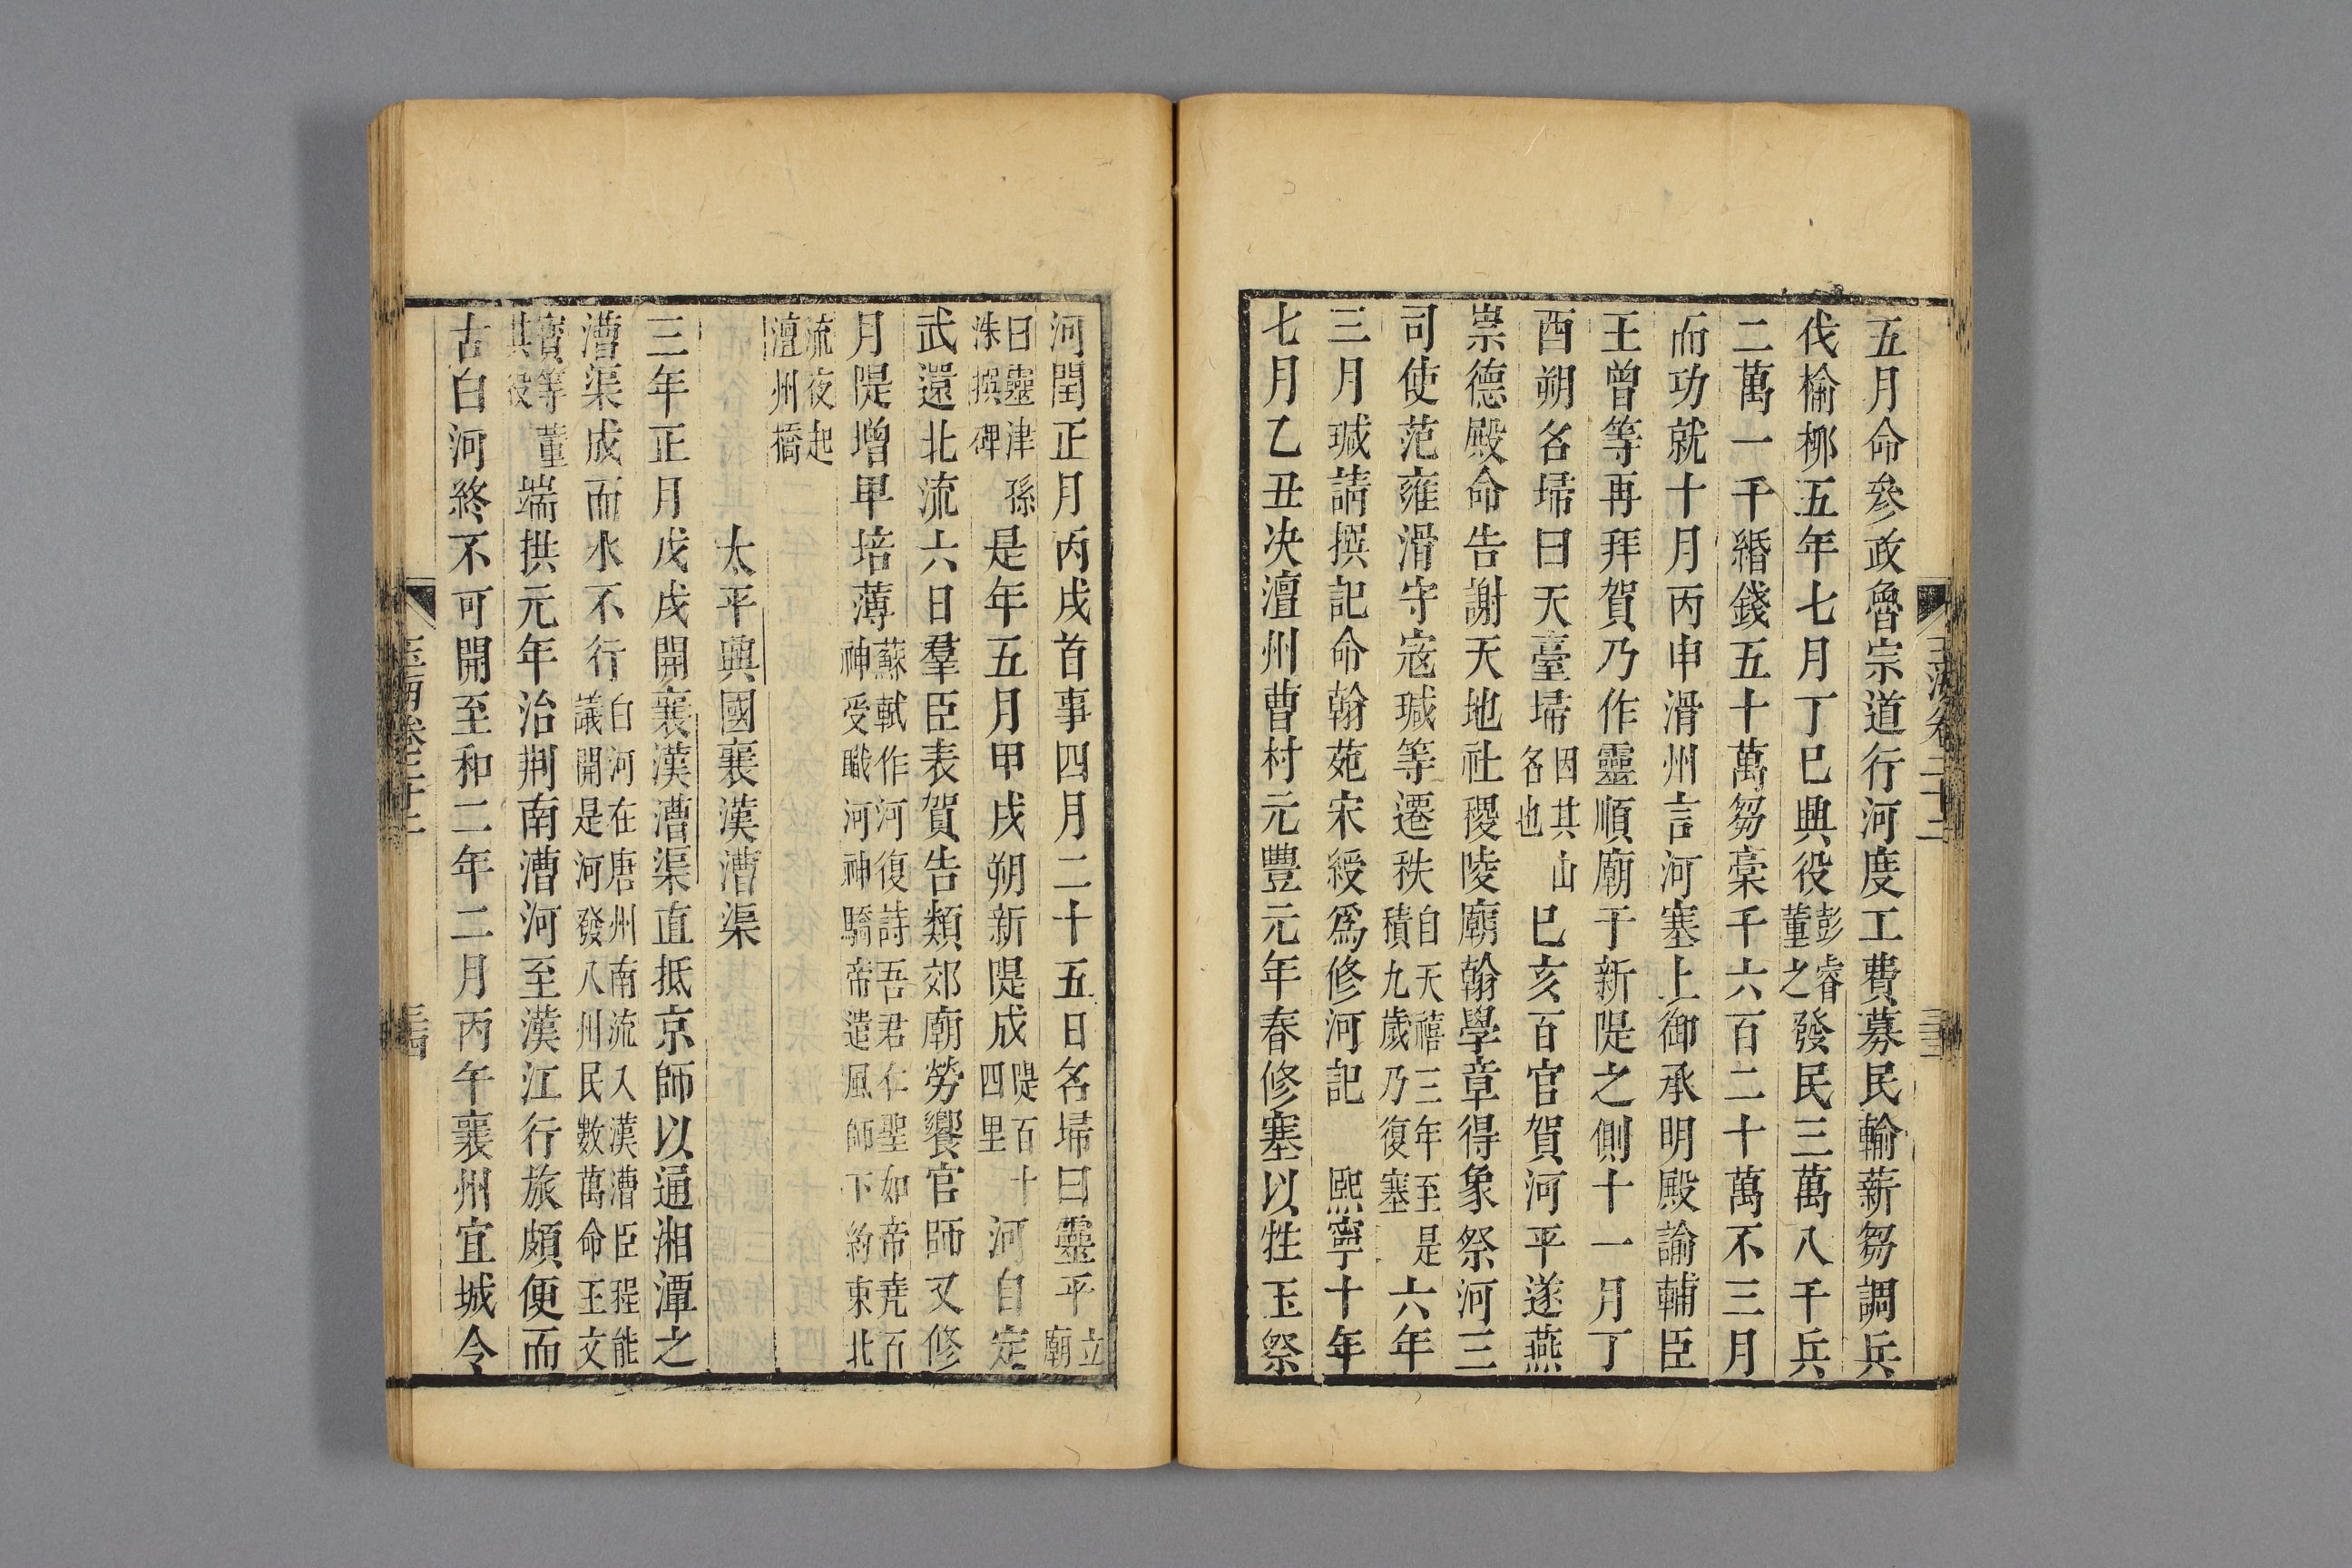 五月命參政魯宗道行河度工費募民輸薪芻調兵
伐榆栁五年七月丁巳興役彭睿董之發民三萬八千兵
二萬一千緡錢五十萬芻稾千六百二十萬不三月
而功就十月丙申滑州言河塞上御承明殿諭輔臣
王曾等再拜賀乃作靈順廟于新隄之側十一月丁
酉朔名埽曰天臺埽因其山名也巳亥百官賀河平遂燕
崇德殿命告謝天地社稷陵廟翰學章得象祭河三
司使范雍滑守寇瑊等遷秩自天禧三年至是積九歲乃復塞六年
三月瑊請撰記命翰苑宋綬爲修河記 熙寧十年
七月乙丑决澶州曹村元豐元年春修塞以牲玉祭
玉海卷二十二
三十三
河閏正月丙戌首事四月二十五日名埽曰靈平立廟
曰靈津孫洙撰碑是年五月甲戌朔新隄成隄百十四里河自定
武還北流六日羣臣表賀告類郊廟勞饗官師又修
月隄增卑培薄蘇軾作河復詩吾君仁聖如帝堯百神受職河神驕帝遣風師下約束北
流夜起澶州橋
太平興國襄漢漕渠
三年正月戊戌開襄漢漕渠直抵京師以通湘潭之
漕渠成而水不行白河在唐州南流入漢漕臣程能議開是河發八州民數萬命王文
寶等董其役端拱元年治荆南漕河至漢江行旅頗便而
古白河終不可開至和二年二月丙午襄州宜城令
三十四